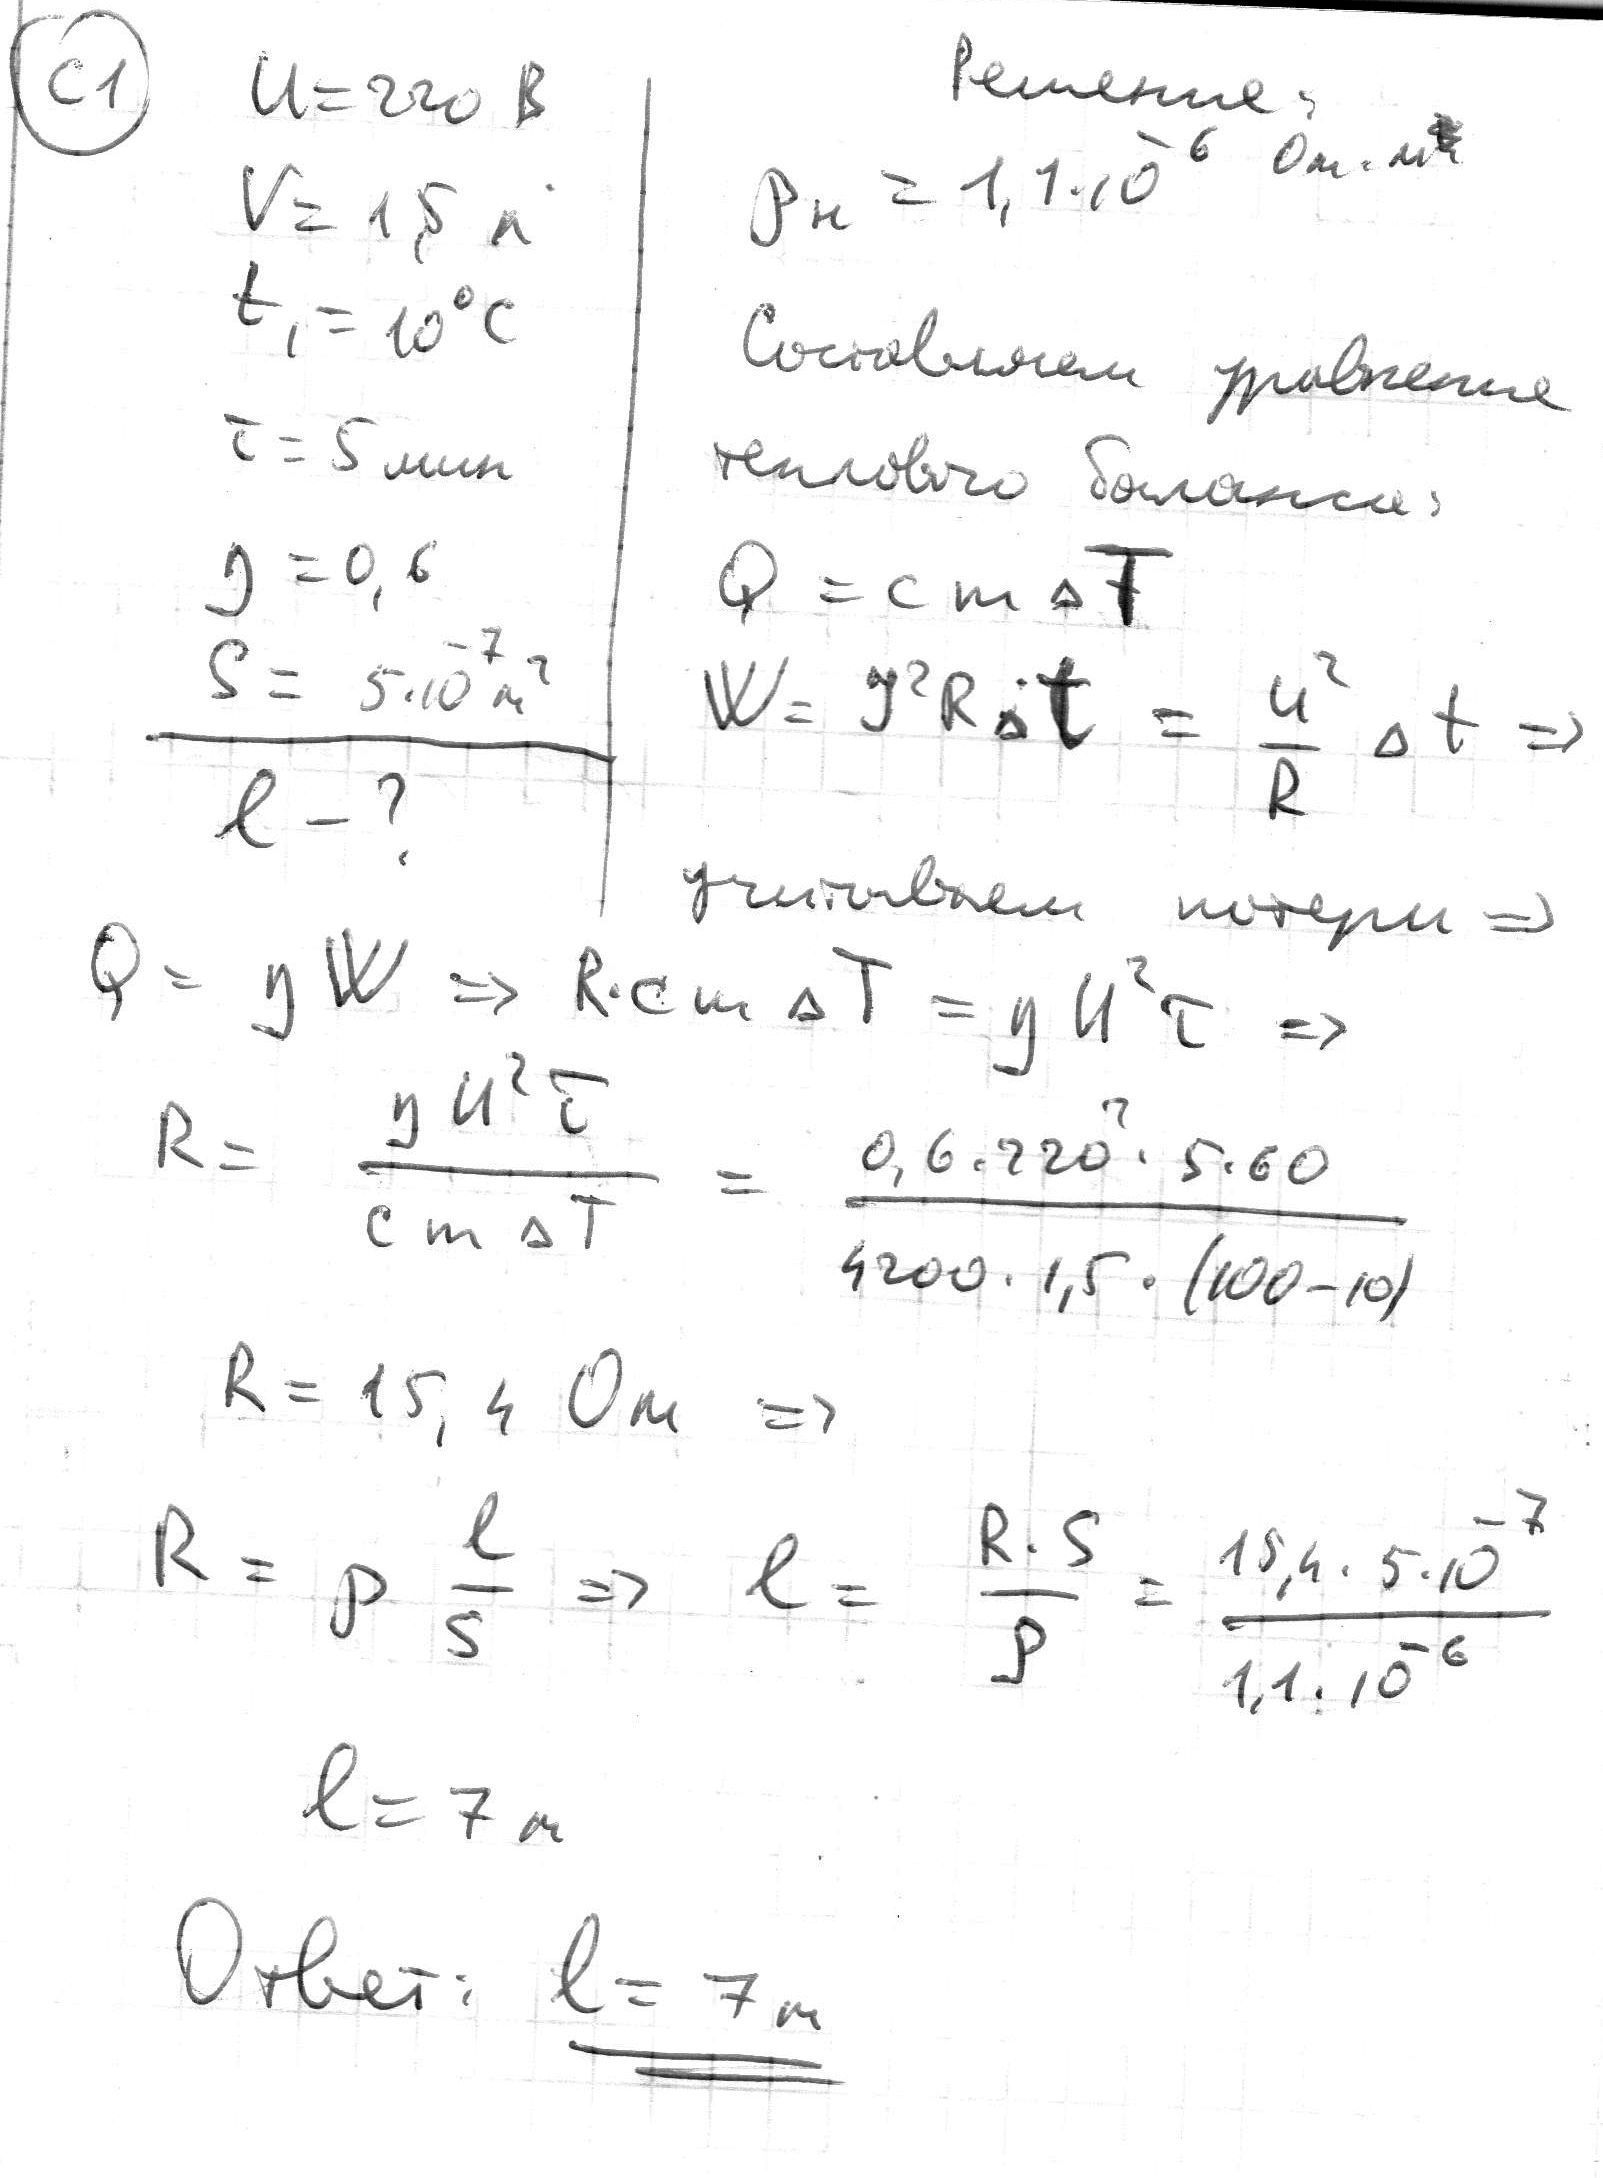 С1
U = 220 В
V = 1,5 л
t₁ = 10°C
τ = 5 мин
η = 0,6
S = 5·10⁻⁷ м²
l - ?
Решение:
ρн = 1,1·10⁻⁶ Ом·м
Составляем уравнение
теплового баланса:
Q = c m ΔT
W = I²RΔt = U²/R Δt =>
учитываем потери =>
Q = ηW => R·c m ΔT = η U² τ =>
R = η U² τ / c m ΔT = 0,6·220²·5·60 / 4200·1,5·(100-10)
R = 15,4 Ом =>
R = ρ l/S => l = R·S/ρ = 15,4·5·10⁻⁷ / 1,1·10⁻⁶
l = 7 м
Ответ: l = 7 м